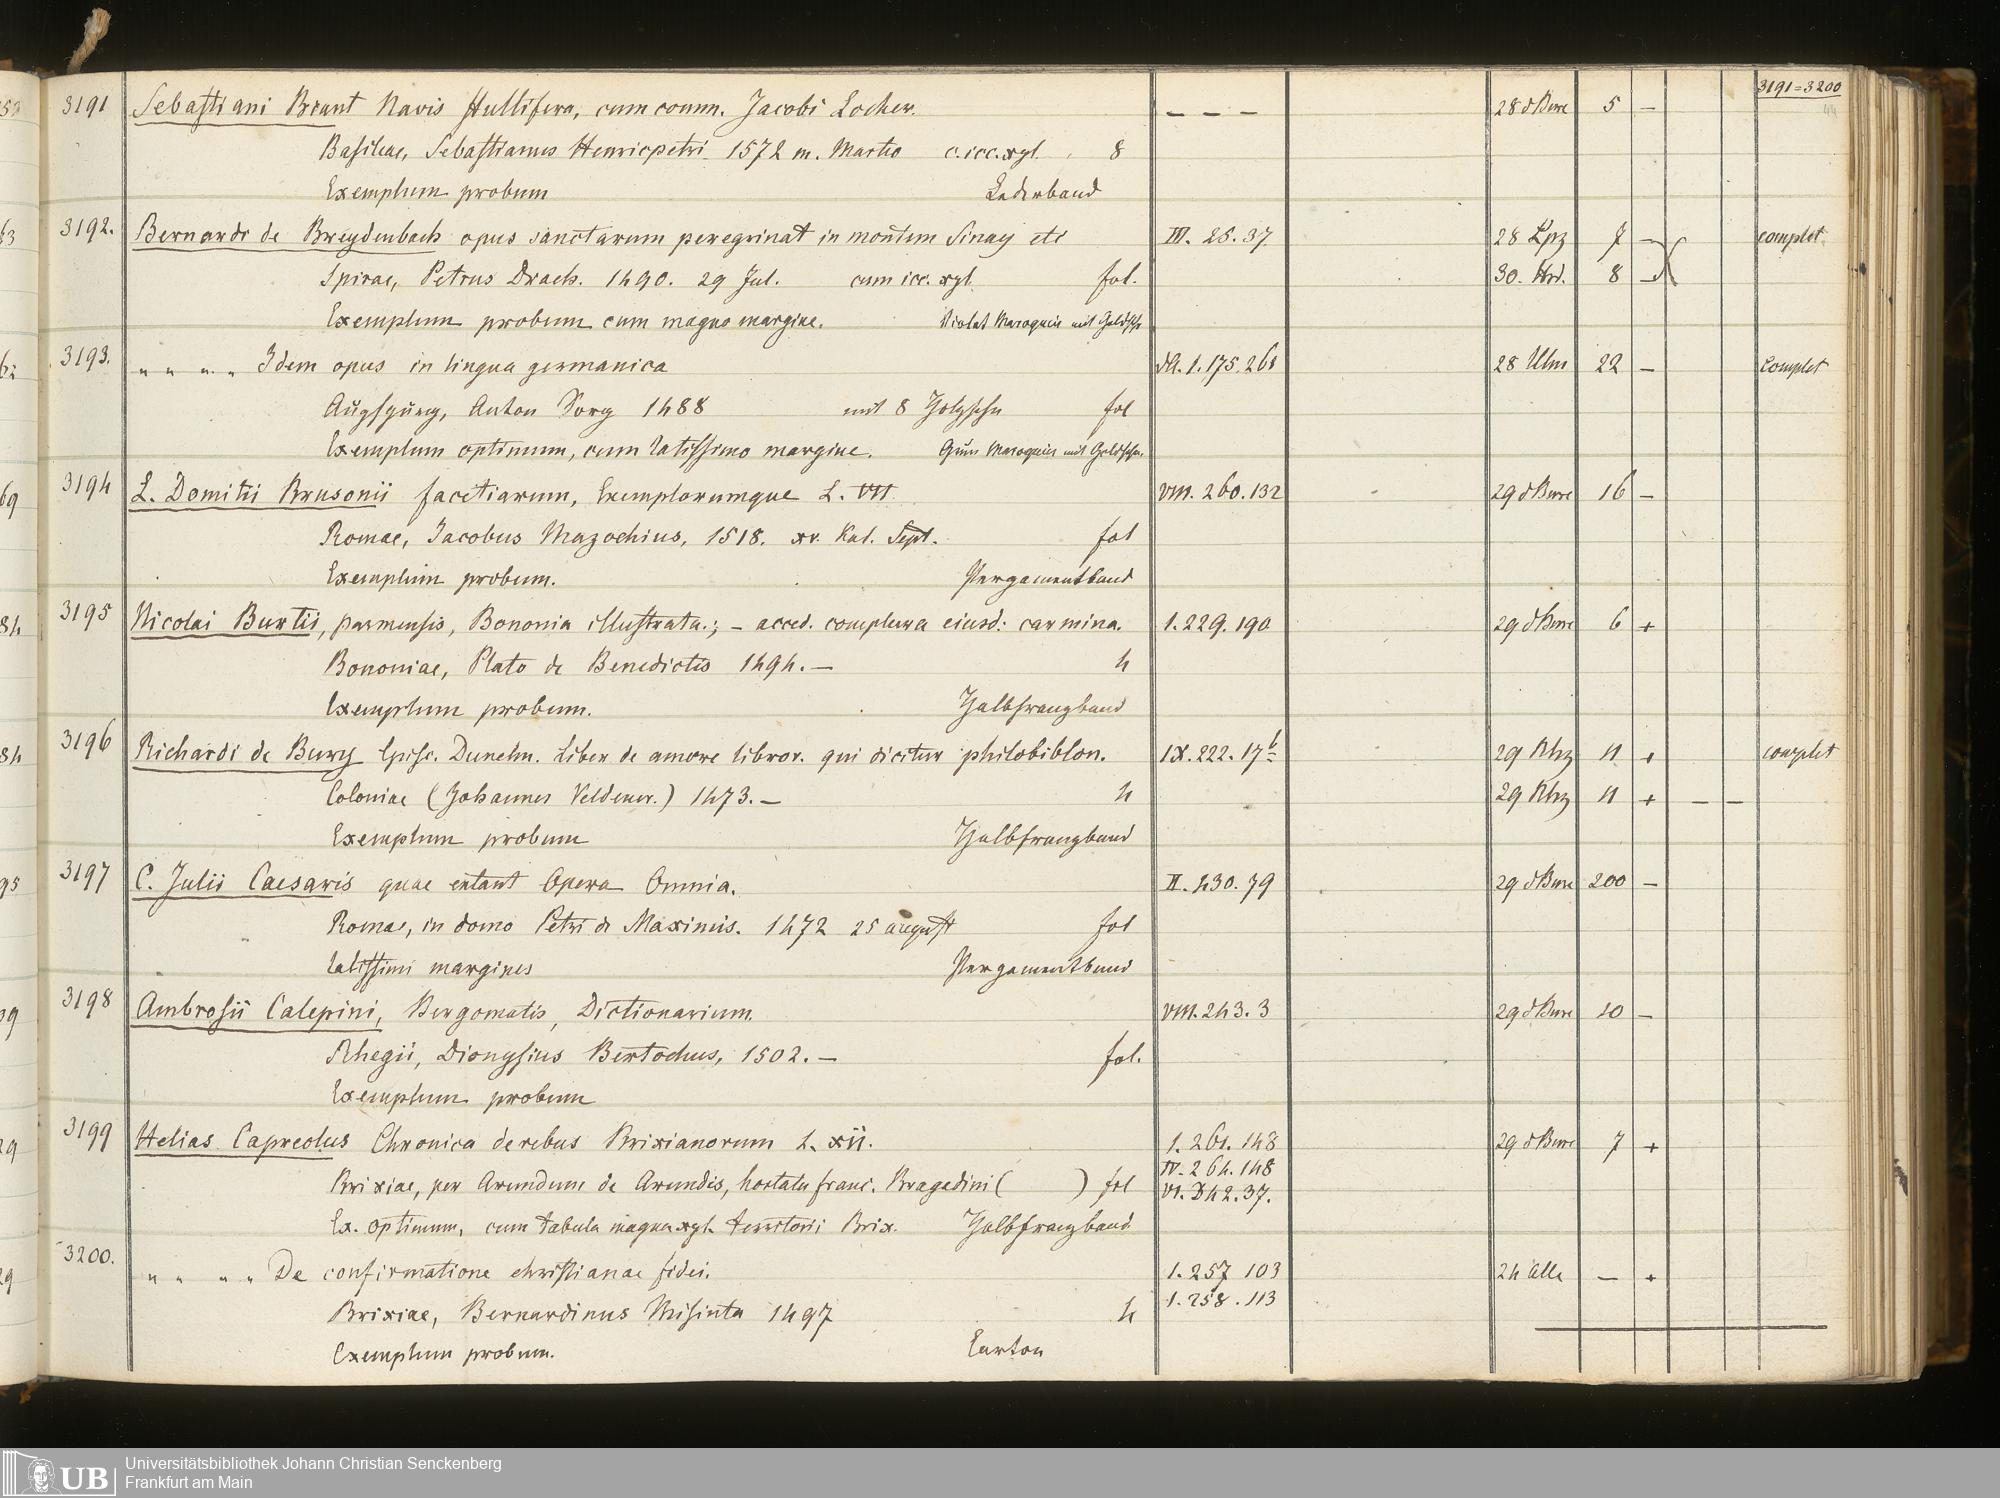 3191=3200
44
3191 Sebastiani Brant Navis Stultifera, cum comm. Jacobi Locher. – – – 28 dBure 5 –
Basileae, Sebastianus Henricpetri 1572 m. Martio c. icc. xyl. 8
Exemplum probum Lederband
3192. Bernardi de Breydenbach opus sanctarum peregrinat in montem Sinay etc III. 25. 37 28 Lpz 7 – complet
Spirae, Petrus Drach. 1490. 29 Jul. cum icc. xyl. fol. 30. Hrd. 8 –
Exemplum probum cum magno margine. Violet Maroquin mit Goldsch
3193. „ „ „ „ Idem opus in lingua germanica 1. 175. 261 28 Ulm 22 – Complet
Augspurg, Anton Sorg 1488 mit 8 Holzschn fol
Exemplum optimum, cum latissimo margine. Grün Maroquin mit Goldschn.
3194 L. Domitii Brusonii facetiarum, Exemplorumque L. VII VIII. 260. 132 29 dBure 16 –
Romae, Jacobus Mazochius, 1518. xv. Kal. Sept. fol
Exemplum probum. Pergamentband
3195 Nicolai Burtii, parmensis, Bononia illustrata.; – acced. complura eiusd: carmina. 1. 229. 190 29 dBure 6 +
Bononiae, Plato de Benedictis 1494. – 4
Exemplum probum. Halbfranzband
3196 Richardi de Bury Episc. Dunelm. Liber de amore libror. qui dicitur philobiblon. IX. 222. 17b 29 Rhz 11 + complet
Coloniae (Johannes Veldener.) 1473. – 4 29 Rhz 11 + – –
Exemplum probum Halbfranzband
3197 C. Julii Caesaris quae extant Opera Omnia. II. 430. 79 29 dBure 200 –
Romae, in domo Petri de Maximis. 1472 25 august fol
Latissimi margines Pergamentband
3198 Ambrosii Calepini, Bergomatis, Dictionarium. VIII. 243. 3 29 dBure 10 –
Rhegii, Dionysius Bertochus, 1502. – fol.
Exemplum probum
3199 Helias Capreolus Chronica de rebus Brixianorum L. xii. 1. 261. 148 29 dBure 7 +
IV. 264. 148
Brixiae, per Arundum de Arundis, hortatu franc. Bragadini ( ) fol VI. 342. 37.
Ex. optimum, cum tabula magna xyl. territorii Brix. Halbfranzband
3200. „ „ „ „ De confirmatione christianae fidei. 1. 257 103 24 alle – +
Brixiae, Bernardinus Misinta 1497 4 1. 258. 113
Exemplum probum. Carton
UB Universitätsbibliothek Johann Christian Senckenberg
Frankfurt am Main